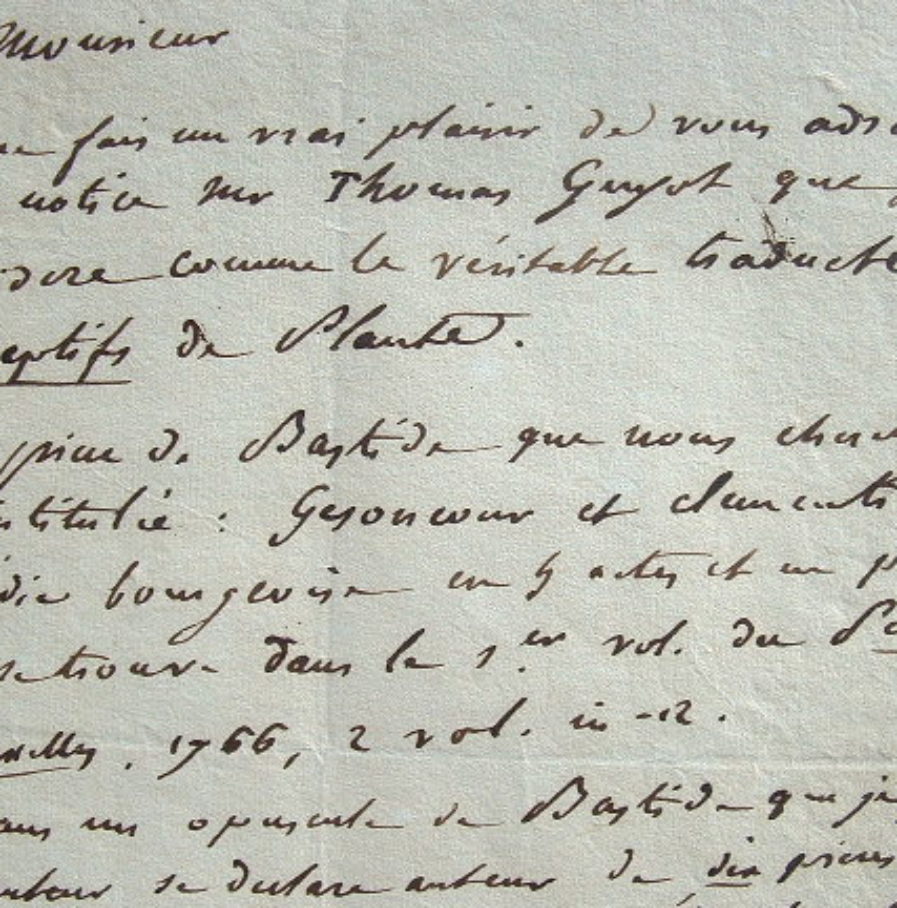 Monsieur
me fais un vrai plaisir de vous adr
notice sur Thomas Guyot que j
idere comme le véritable traducte
aptifs de Plaute.
pièce de Bastide que nous cherc
ntitulée : Gesoncour et Clementi
édie bourgeoise en 5 actes et en p
se trouve dans le 1.er vol. du
1766, 2 vol. in-12.
ans un opuscule de Bastide que j'a
auteur se declare auteur de dix pièces